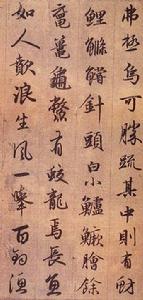 弗極烏可勝疏其中則有
鯉鰷針頭白小鱸鱖膾餘
黿鼉龜鼈有蛟龍焉長魚
如人歕浪生風一舉百鈞漁